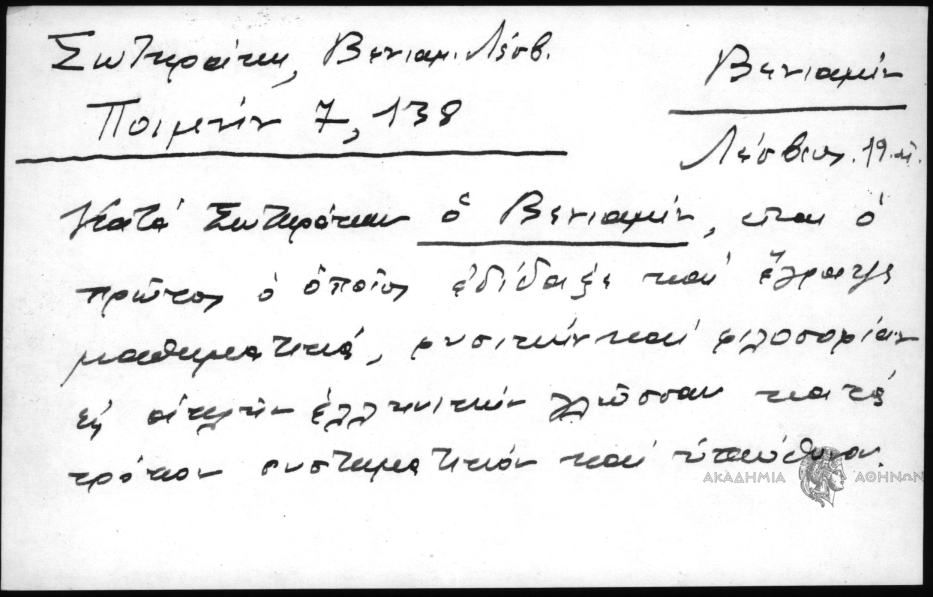 Σωτηράκη, Βενιαμ. Λέσβ.
Βενιαμίν
Ποιμήν 7, 138
Λέσβιος. 19 αἰ.
Κατά Σωτηράκην ὁ Βενιαμίν, εἶναι ὁ
πρῶτος ὁ ὁποῖος ἐδίδαξε καί ἔγραψε
μαθηματικά, φυσικήν καί φιλοσοφίαν
εἰς ἁπλῆν ἑλληνικήν γλῶσσαν κατά
τρόπον συστηματικόν καί ὑπεύθυνον.
ΑΚΑΔΗΜΙΑ ΑΘΗΝΩΝ